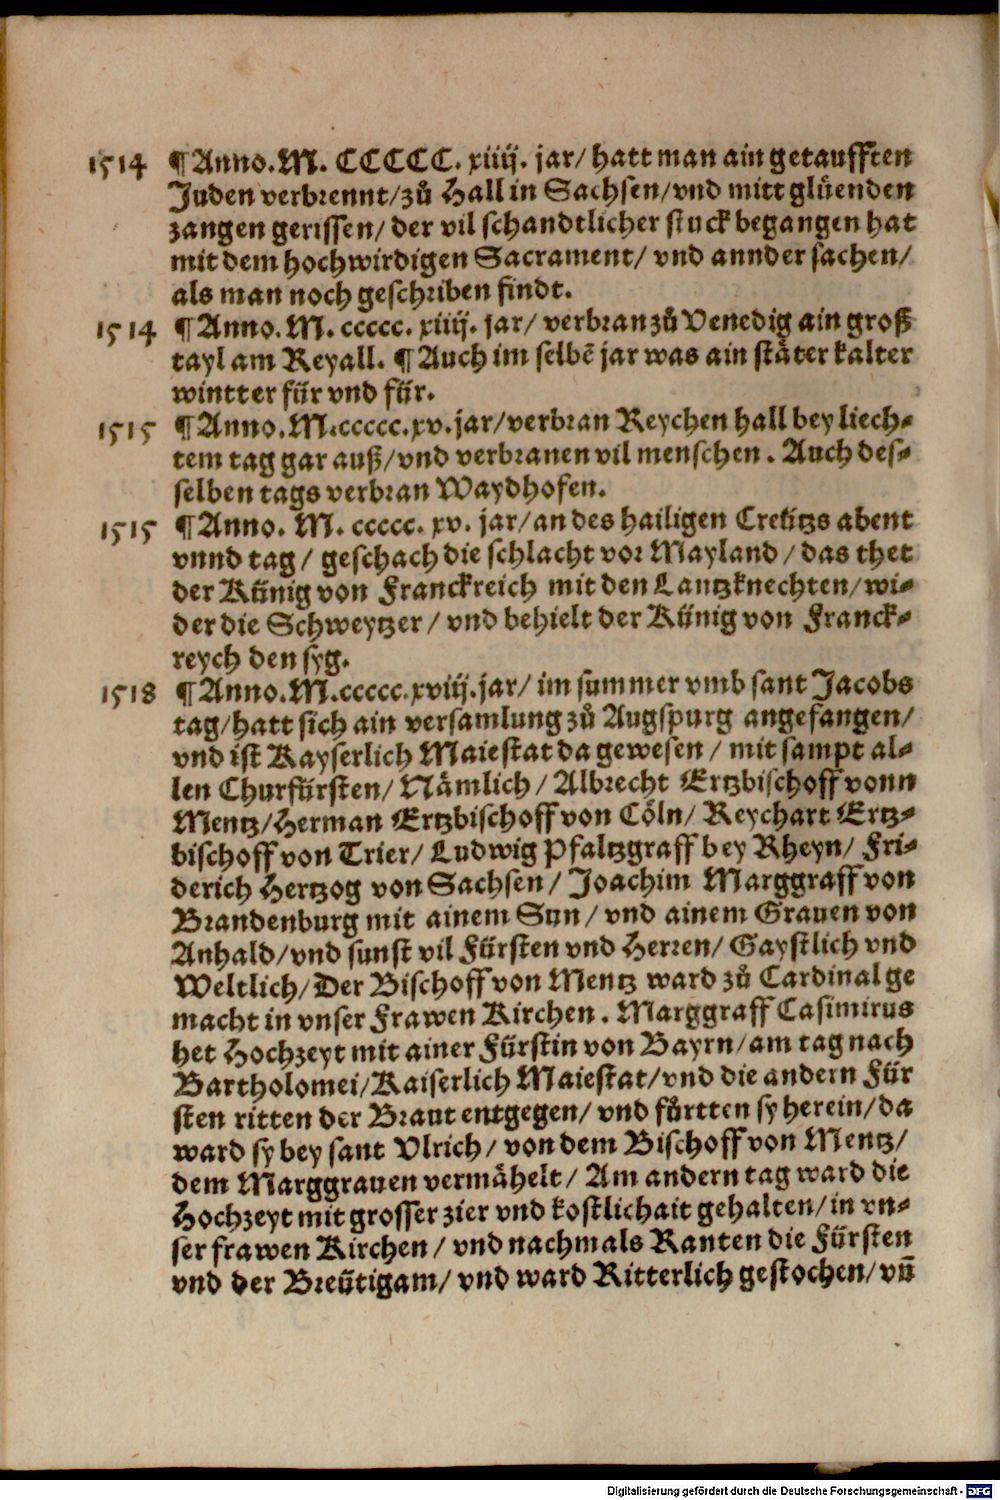 1514 ¶Anno. M. CCCCC. xiiij. jar/ hatt man ain getaufften
Juden verbrennt/zů Hall in Sachsen/vnd mitt glüenden
zangen gerissen/ der vil schandtlicher stuck begangen hat
mit dem hochwirdigen Sacrament/ vnd annder sachen/
als man noch geschriben findt.
1514 ¶Anno. M. ccccc. xiiij. jar/ verbran zů Venedig ain groß
tayl am Reyall. ¶Auch im selbē jar was ain stäter kalter
wintter für vnd für.
1515 ¶Anno. M.ccccc.xv.jar/verbran Reychen hall bey liech-
tem tag gar auß/vnd verbranen vil menschen. Auch des-
selben tags verbran Waydhofen.
1515 ¶Anno. M. ccccc. xv. jar/an des hailigen Creützs abent
vnnd tag/ geschach die schlacht vor Mayland/das thet
der Künig von Franckreich mit den Lantzknechten/wi-
der die Schweytzer/ vnd behielt der Künig von Franck-
reych den syg.
1518 ¶Anno.M.ccccc.xviij.jar/ im summer vmb sant Jacobs
tag/hatt sich ain versamlung zů Augspurg angefangen/
vnd ist Kayserlich Maiestat da gewesen/ mit sampt al-
len Churfürsten/ Nämlich/ Albrecht Ertzbischoff vonn
Mentz/Herman Ertzbischoff von Cöln/ Reychart Ertz-
bischoff von Trier/ Ludwig Pfaltzgraff bey Rheyn/ Fri-
derich Hertzog von Sachsen/ Joachim Marggraff von
Brandenburg mit ainem Sun/ vnd ainem Grauen von
Anhald/vnd sunst vil Fürsten vnd Herren/ Gaystlich vnd
Weltlich/Der Bischoff von Mentz ward zů Cardinal ge
macht in vnser Frawen Kirchen. Marggraff Casimirus
het Hochzeyt mit ainer Fürstin von Bayrn/am tag nach
Bartholomei/Kaiserlich Maiestat/vnd die andern Für
sten ritten der Braut entgegen/ vnd fůrtten sy herein/da
ward sy bey sant Vlrich/ von dem Bischoff von Mentz/
dem Marggrauen vermähelt/ Am andern tag ward die
Hochzeyt mit grosser zier vnd kostlichait gehalten/in vn-
ser frawen Kirchen/ vnd nachmals Ranten die Fürsten
vnd der Breütigam/ vnd ward Ritterlich gestochen/vn̄
Digitalisierung gefördert durch die Deutsche Forschungsgemeinschaft - DFG